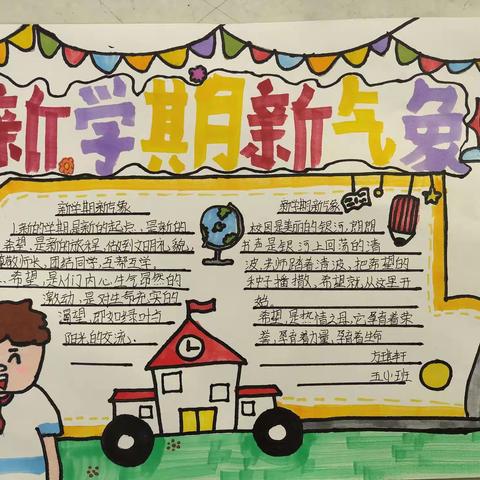 新学期新气象
新学期新气象
1.新的学期是新的起点、是新的
希望,是新的旅程,做到文明礼貌、
尊敬师长、团结同学、互帮互学
、希望,是人们内心,生气昂然的
激动,是对生命充实的
渴望,那如绿叶点
阳光的交流、
新学期新气象
校园是美丽的银河,朗朗
书声是银河上回荡的清
波,老师踏着清波、把希望的
种子播撒、希望就从这里开
始。
希望是热情之母,它孕育着荣
誉,孕育着力量,孕育着生命
五(小)班